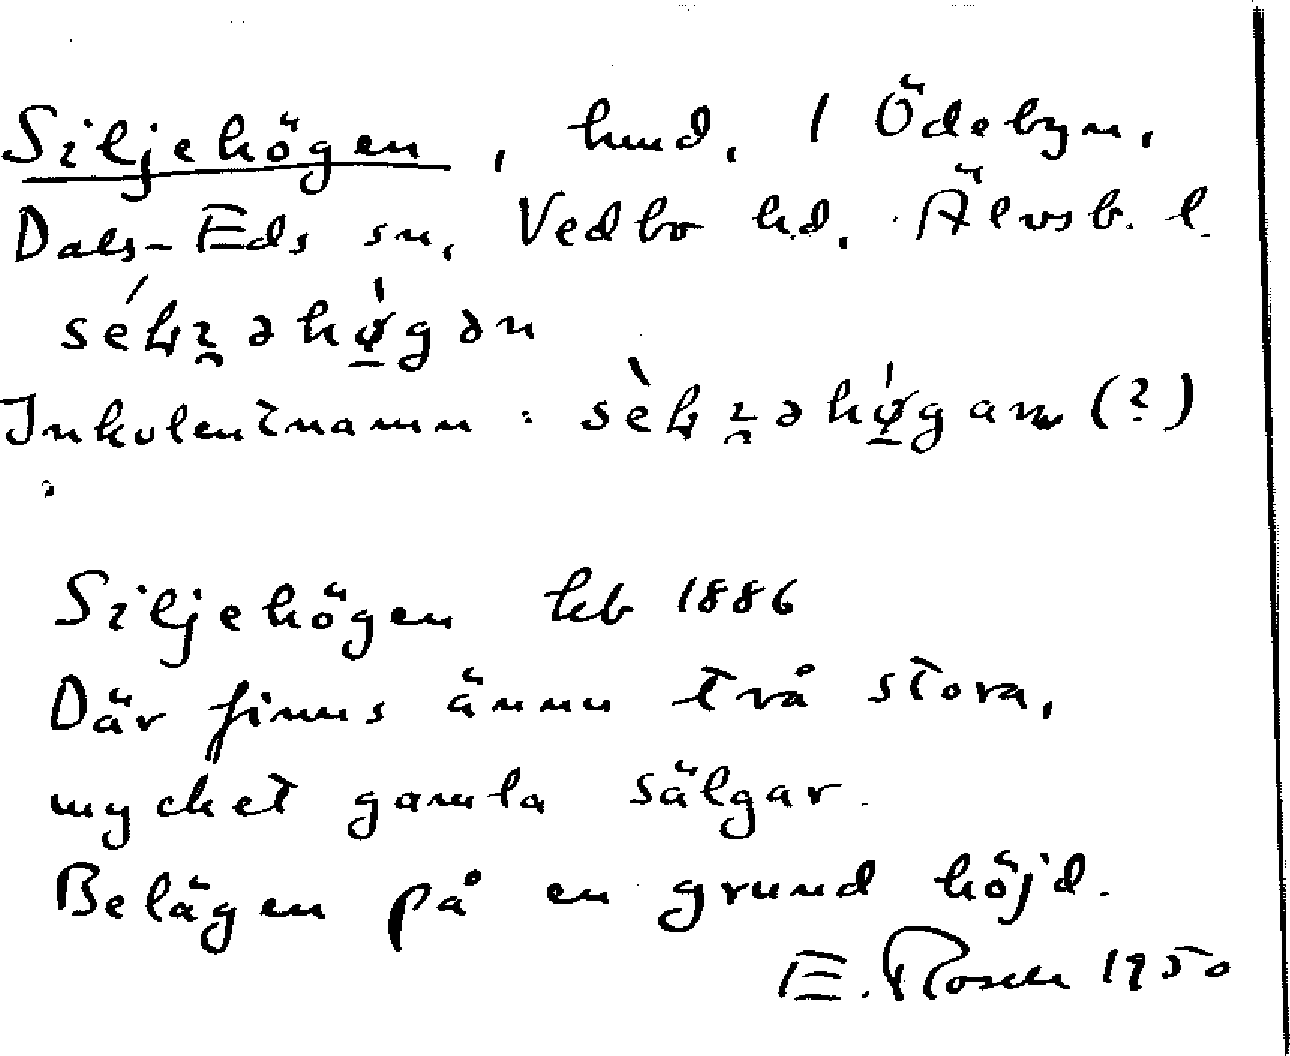 Siljehögen, hmd. 1 Ödebyn,
Dals-Eds sn, Vedbo hd. Älvsb. l.
Inkolentnamn:
Siljehögen hb 1886
Där finns ännu två stora,
mycket gamla sälgar.
Belägen på en grund höjd.
E. Rosell 1950